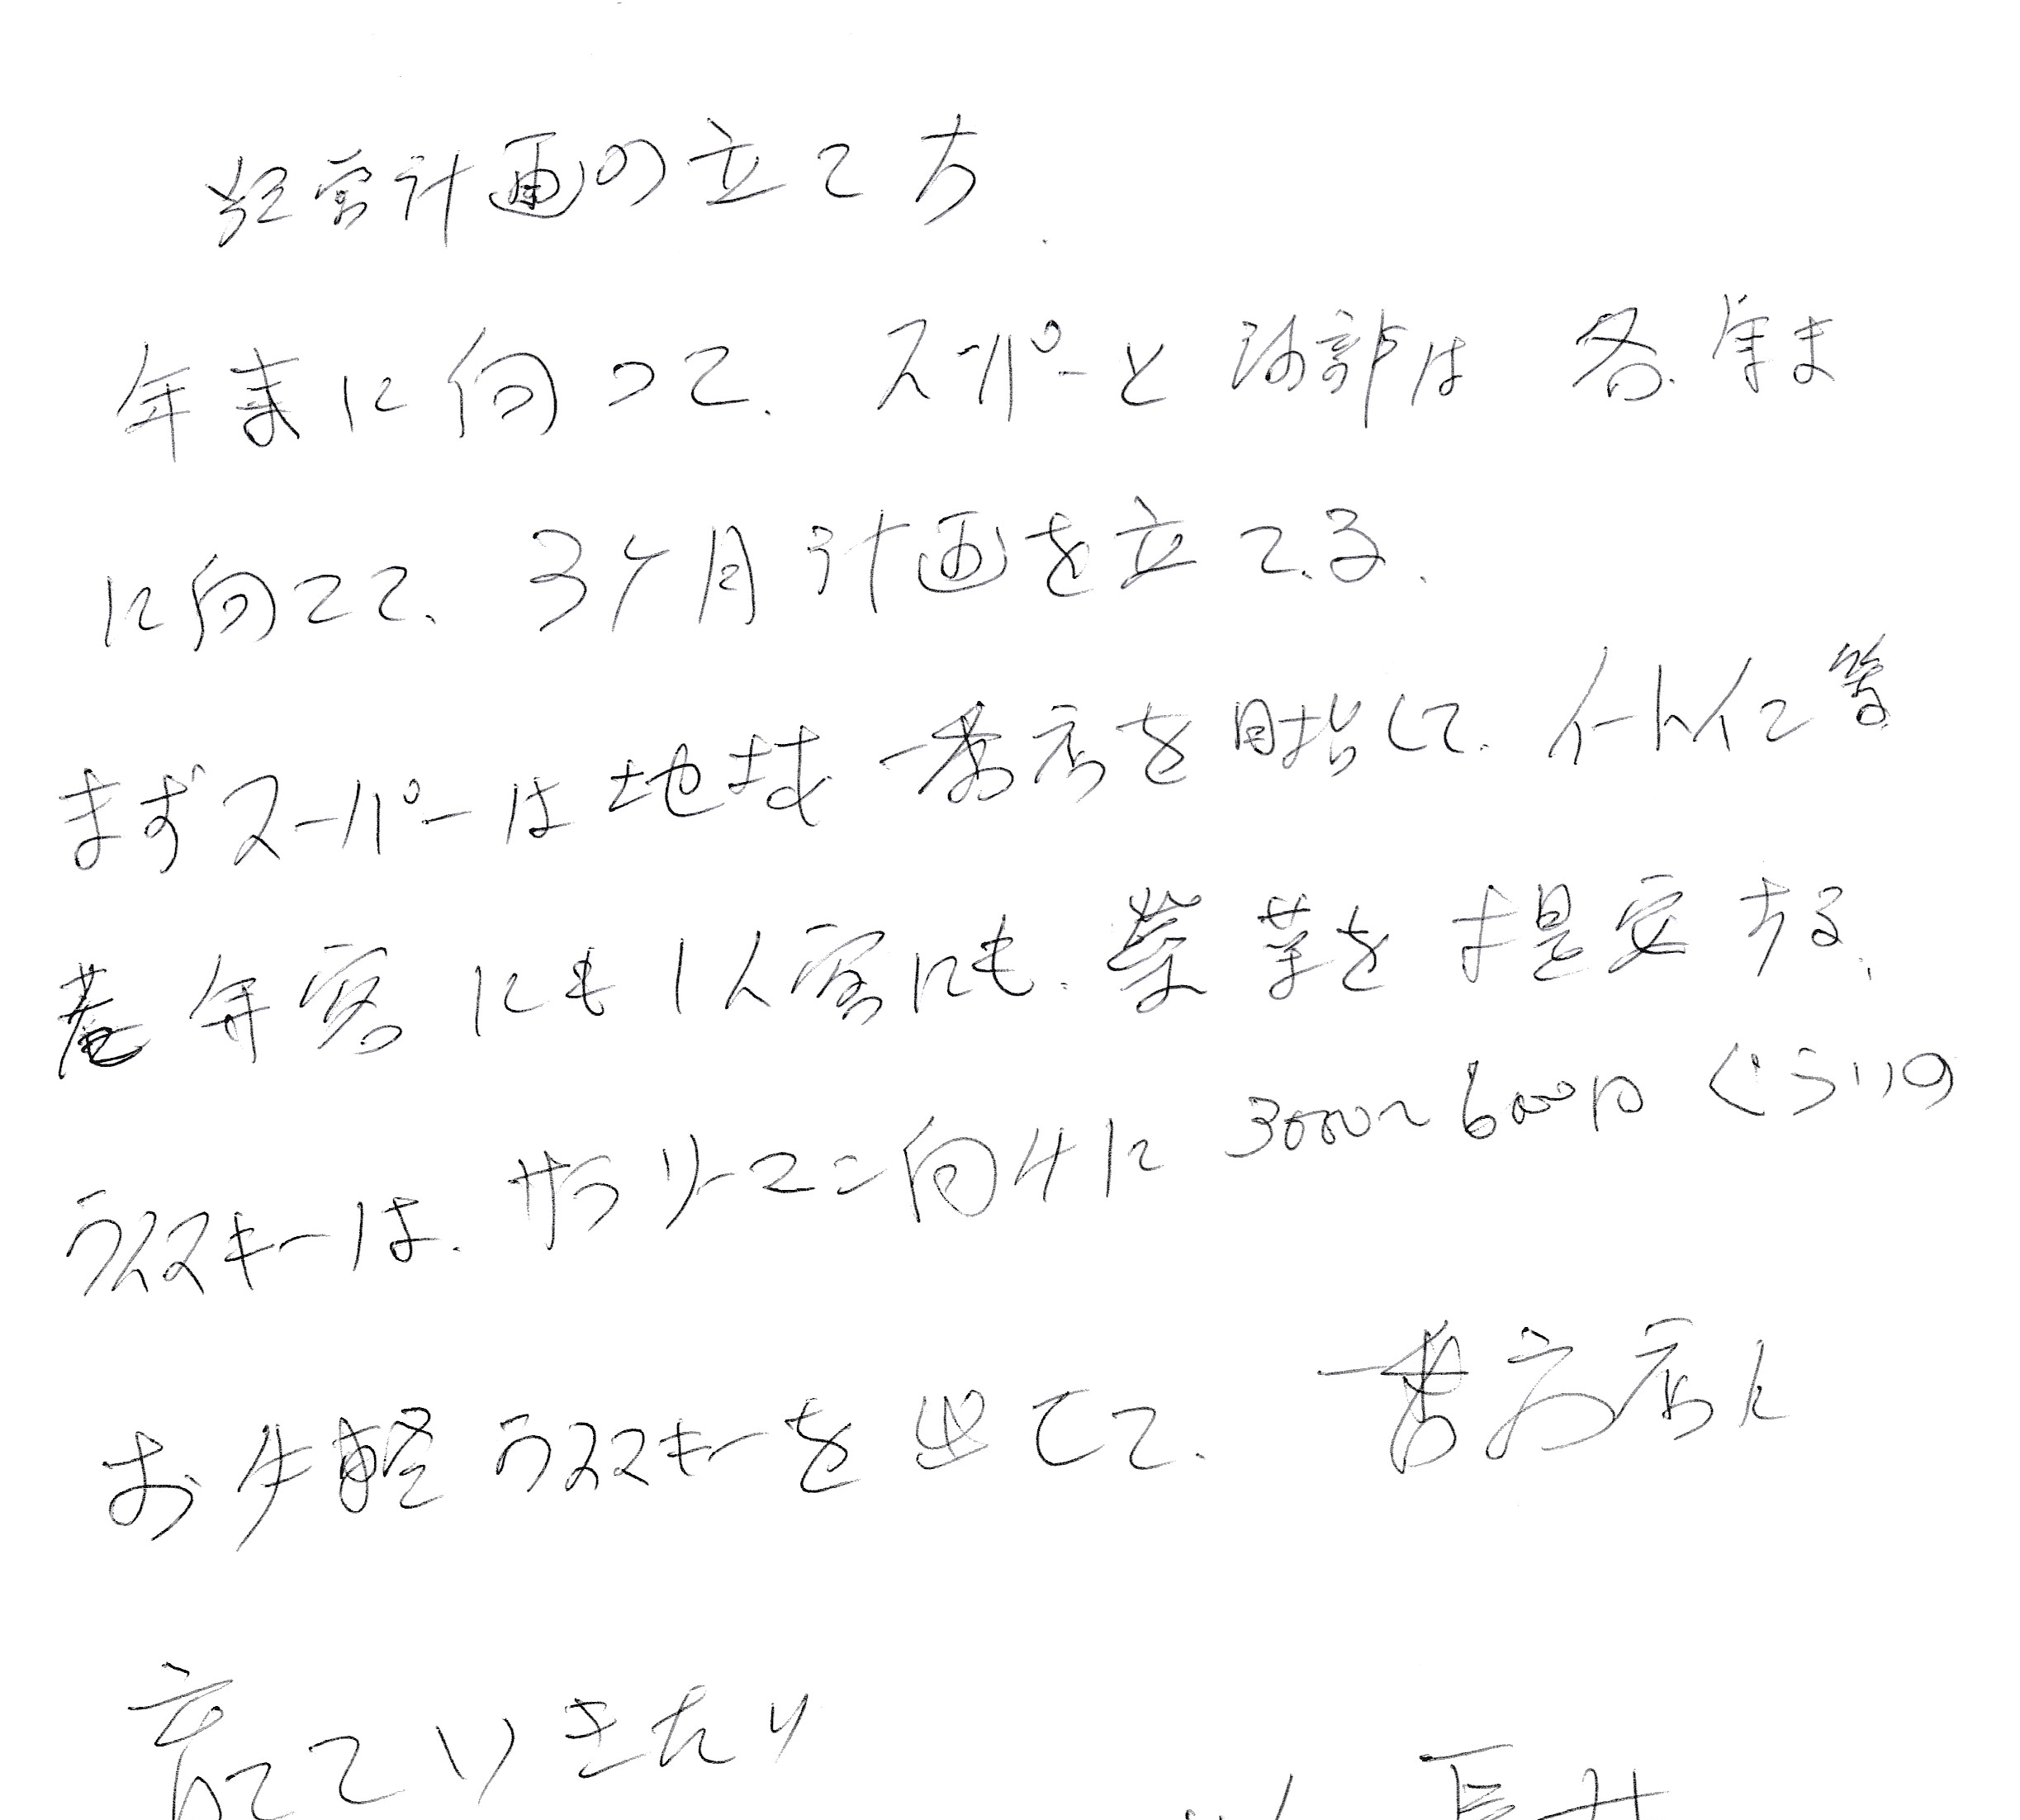 経営計画の立て方
年末に向って、スーパーと酒部は各、年末
に向って、3ヶ月計画を立てる。
まずスーパーは地域一番店を目指して、イートイン等
老年客にも1人客にも、営業を提案する、
ウイスキーは、サラリーマン向けに3000〜6000円ぐらいの
お手軽ウイスキーを出して、一番店に
育てていきたい